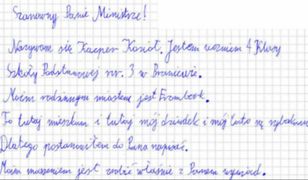 Szanowny Panie Ministrze!
Nazywam się Kacper Kozioł. Jestem uczniem 4 klasy
Szkoły Podstawowej nr. 3 w Braniewie.
Moim rodzinnym miastem jest Frombork.
To tutaj mieszkam i tutaj mój dziadek i mój tata się
Dlatego postanowiłem do Pana napisać.
Moim marzeniem jest zrobić właśnie z Panem wywiad.